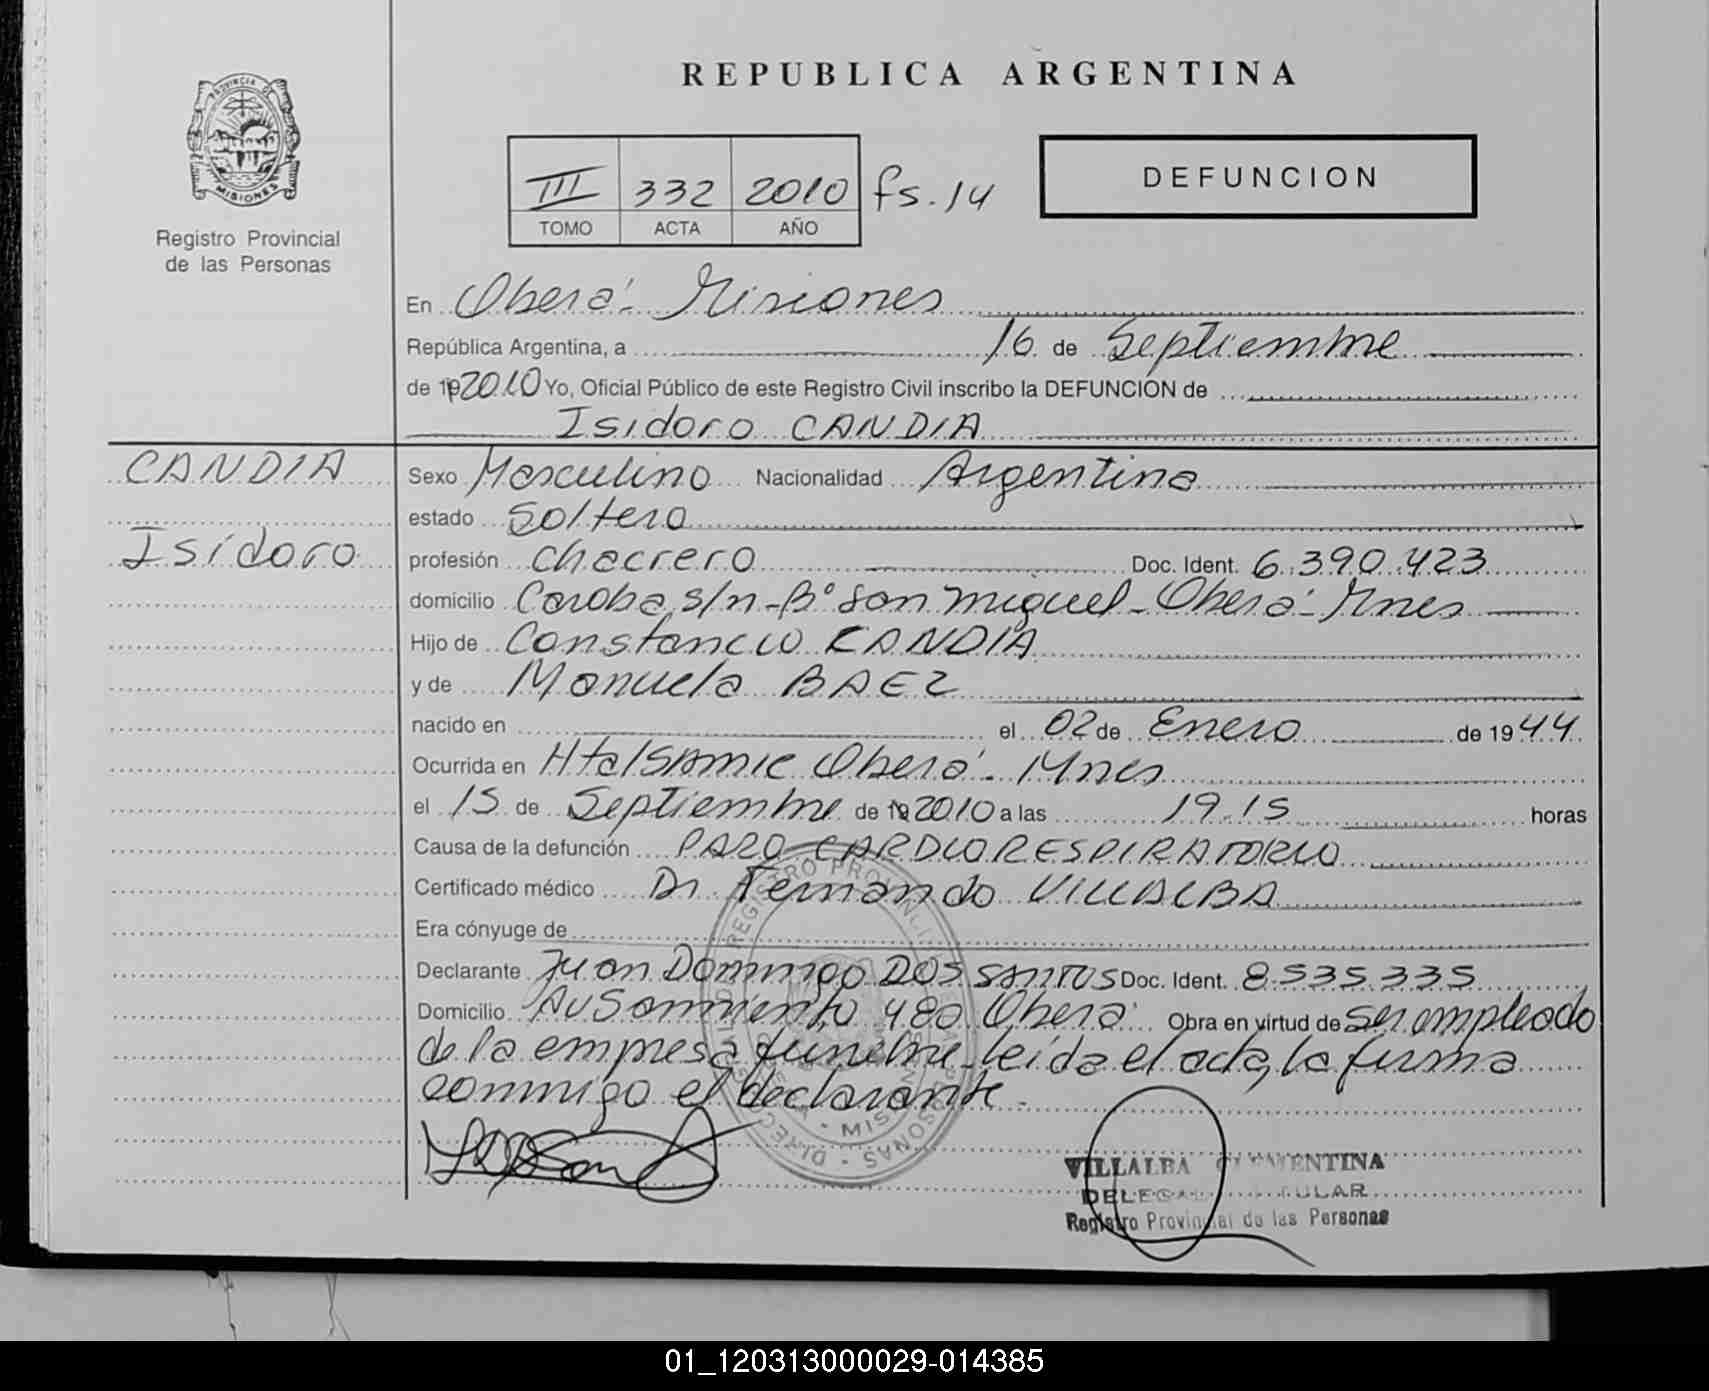 REPUBLICA ARGENTINA
PROVINCIA DE
MISIONES
Registro Provincial
de las Personas
III 332 2010 fs. 14
TOMO ACTA AÑO
DEFUNCION
En Oberá - Misiones
República Argentina, a 16 de Septiembre
de 19 2010 Yo, Oficial Público de este Registro Civil inscribo la DEFUNCION de
Isidoro CANDIA
CANDIA
Isidoro
Sexo Masculino Nacionalidad Argentina
estado Soltero
profesión chacrero Doc. Ident. 6.390.423
domicilio Caroba s/n - Bº San Miguel - Oberá - Mnes
Hijo de Constancio CANDIA
y de Manuela BAEZ
nacido en el 02 de Enero de 1944
Ocurrida en Htal SAMIC Oberá - Mnes
el 15 de Septiembre de 19 2010 a las 19.15 horas
Causa de la defunción PARO CARDIORESPIRATORIO
Certificado médico Dr. Fernando VILLALBA
Era cónyuge de
Declarante Juan Domingo DOS SANTOS Doc. Ident. 8.535.335
Domicilio Av Sarmiento 480 Oberá Obra en virtud de ser empleado
de la empresa funebre - leida el acta, la firma
conmigo el declarante -
VILLALBA CLEMENTINA
DELEGADA TITULAR
Registro Provincial de las Personas
01_120313000029-014385